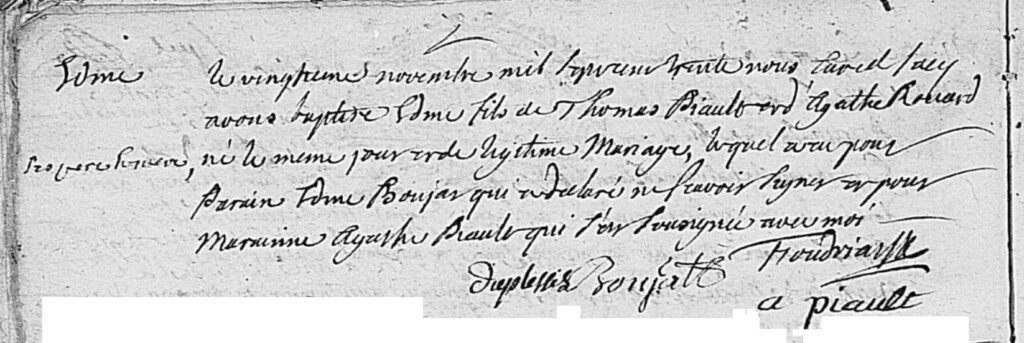 Edme le vingtieme novembre mil sept cens trente nous curé
avons baptisé Edme fils de Thomas Piault et d'Agathe Rouard
né le meme jour et de legitime Mariage, lequel a eu pour
Parain Edme Boujat qui a declaré ne scavoir signer et pour
Marainne Agathe Piault qui s'est sousignée avec moi
Duplessis Boujatt
a piault